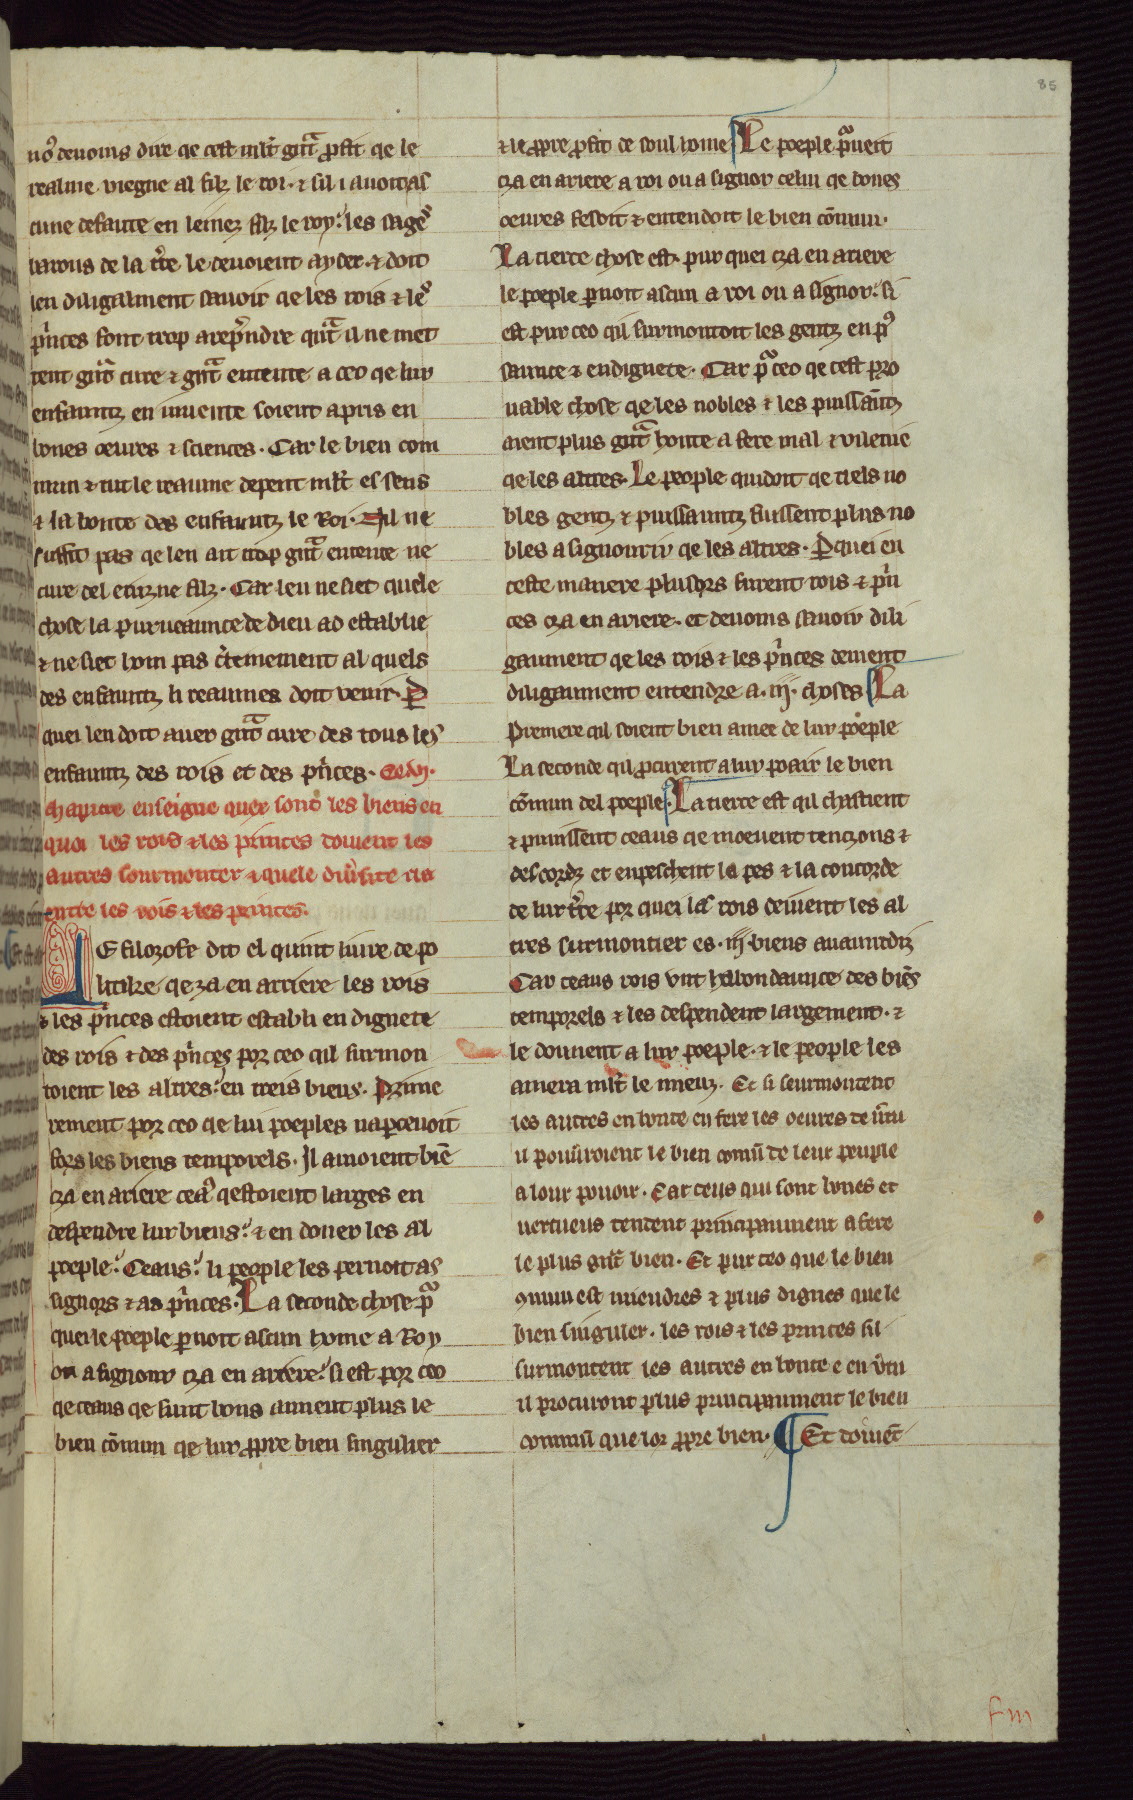 85
noꝰ devoms dire qe cest mlt̃ gñt ꝓfit qe le
realme viegne al filz le roi · ⁊ sil i avoit as
cune defaute en leinez filz le roy : les sages
barons de la tr̃e le devoient ayder · ⁊ doit
len diligalment savoir qe les rois ⁊ les
p̃nces font trop a rep̃ndre qñt il ne met
tent gñt cure ⁊ gñt entente a ceo qe lur
enfauntz en iuvente soient apris en
bones oeuvres ⁊ sciences · Car le bien com
mun ⁊ tut le reaume depent mlt̃ es sens
⁊ la bonte des enfauntz le Roi · Il ne
suffit pas qe len ait trop gñt entente ne
cure del einzne filz · Car len ne siet quele
chose la purveaunce de dieu ad establie
⁊ ne siet hom pas c̃teinement al quels
des enfauntz li reaumes doit venir · P
quei len doit aver gñt cure des tous les
enfauntz des rois et des p̃nces ·
chapitre enseigne quex sont les biens en
quoi les rois ⁊ les princes doivent les
autres sourmonter ⁊ quele div̾site
entre les rois ⁊ les princes .
LE filozofe dit el quint livre de po
litike qe za en arriere les rois
⁊ les p̃nces estoient establi en dignete
des rois ⁊ des p̃nces por ceo qil surmon
toient les altres : en treis biens · Prime
rement por ceo qe lui poeples naꝑcevoit
fors les biens temporels · Il amoient biē
cza en ariere ceaꝰ qestoient larges en
despendre lur biens : ⁊ en doner les al
poeple : Ceaus : li people les pernoit as
signors ⁊ as p̃nces · La seconde chose pͣ
quei le poeple ꝑnoit ascun home a Roy
ou a signour cza en ariere : si est por ceo
qe ceaus qe sunt bons aiment plus le
bien cōmun qe lur ꝓpre bien singulier
⁊ le ꝓpre ꝓfit de soul home Le poeple pͣneit
cza en ariere a roi ou a signor celui qe bones
oeuvres fesoit ⁊ entendoit le bien cōmun ·
La tierce chose est · pur quei cza en ariere
le poeple ꝑnoit ascun a roi ou a signor : si
est pur ceo qil surmontoit les gentz en pꝰ
saunce ⁊ en dignete · Car pͣ ceo qe cest pro
vable chose qe les nobles ⁊ les puissãntz
aient plus gñt honte a fere mal ⁊ vilenie
qe les altres · Le people quidoit qe tiels no
bles gentz ⁊ puissauntz fussent plus no
bles a signourir qe les altres · Pquei en
ceste maniere plusors furent rois ⁊ p̃n
ces cza en ariere · et devoms savoir dili
gaument qe les rois ⁊ les p̃nces deivent
diligaument entendre a · iij · choses La
Premere qil soient bien amee de lur poeple
La seconde qil ꝓcurent a lur poair le bien
cōmun del poeple · La tierce est qil chastient
⁊ punissent ceaus qe moevent tenczons ⁊
descordz et enpeschent la pes ⁊ la concorde
de lur tr̃e por quei las rois deivent les al
tres surmontier es · iij · biens avauntdiz
Car ceaus rois unt habondaunce des biēs
temporels ⁊ les despendent largement · ⁊
le donnent a lur poeple · ⁊ le people les
amera mlt̃ le mieuz · Et si seurmontent
les autres en bonte en fere les oevres de v̾tu
il pouv̾roient le bien comū de leur peuple
a lour povoir · Car ceus qui sont bones et
vertueus tendent principaument a fere
le plus gñt bien · Et pur ceo que le bien
ꝯmun est miendres ⁊ plus dignes que le
bien singuler · les rois ⁊ les princes sil
surmontent les autres en bonte e en v̾tu
il procuront plus principaument le bien
commū que lor ꝓpre bien · ¶ Et doivēt